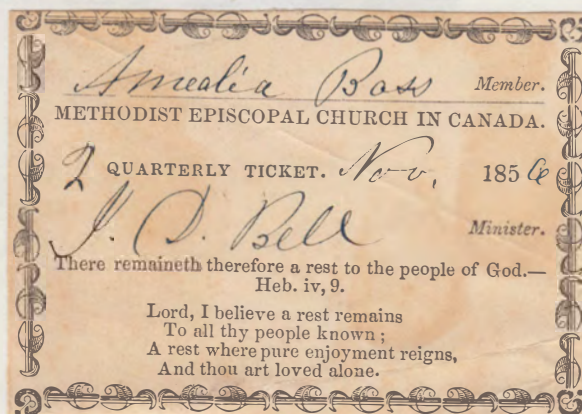 Amealia Bass Member.
METHODIST EPISCOPAL CHURCH IN CANADA.
2 QUARTERLY TICKET. Nov, 1856
J. D. Bell Minister.
There remaineth therefore a rest to the people of God.—
Heb. iv, 9.
Lord, I believe a rest remains
To all thy people known ;
A rest where pure enjoyment reigns,
And thou art loved alone.